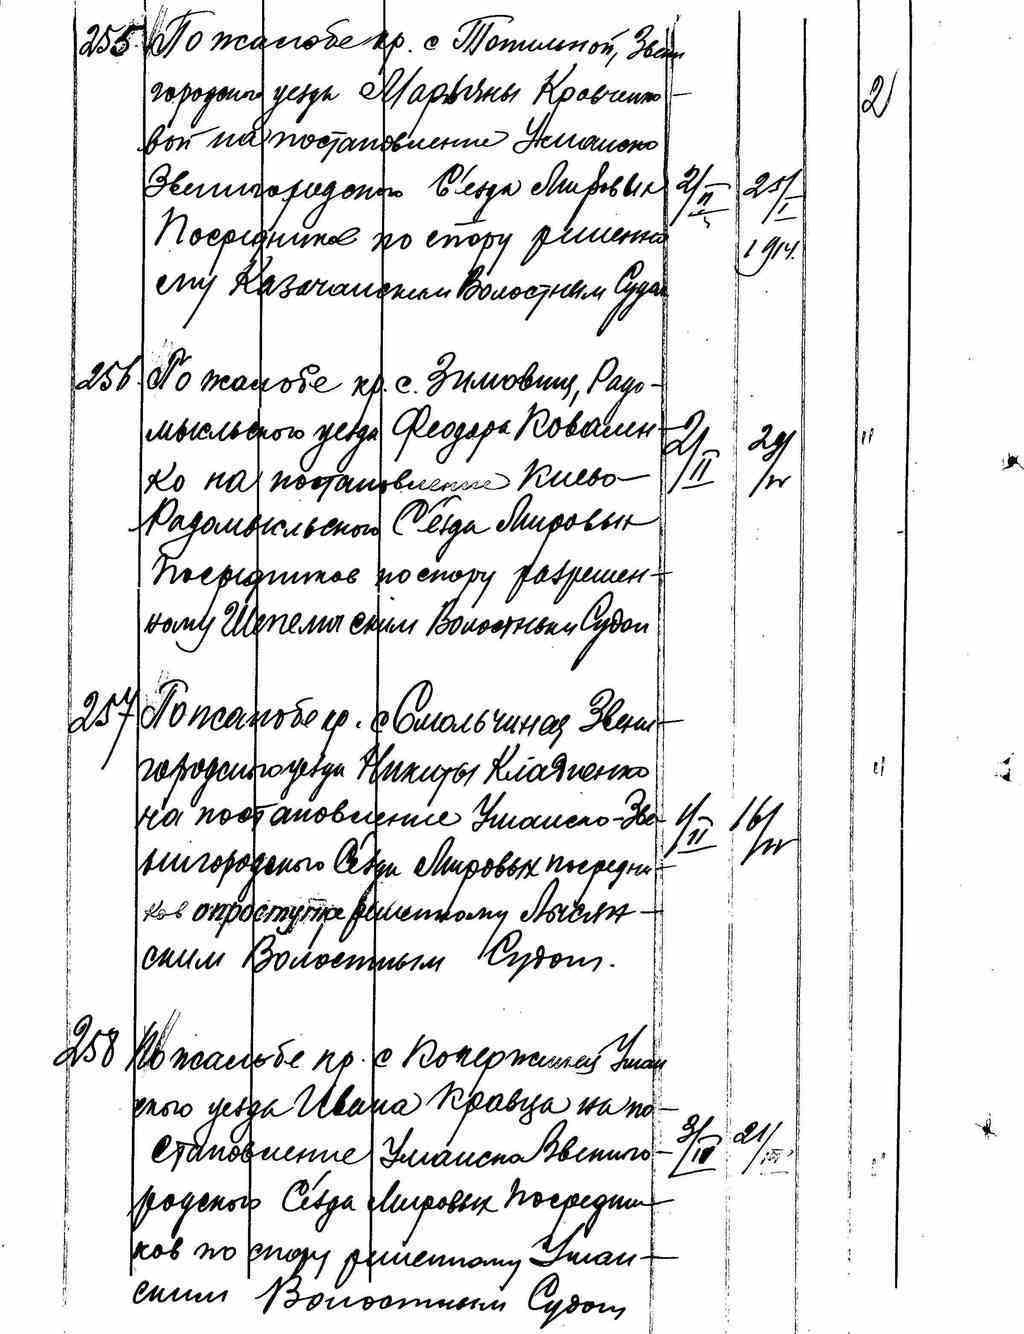 255. По жалобе кр. с Топильной, Звени
городского уезда Марьяны Кравченко- 2
вой на постановление Уманско
Звенигородского С'езда Мировых 2/II 25/I
Посредников по спору решенно 1914.
му Казачанским Волостным Судом
256. По жалобе кр. с. Зимовищ, Радо-
мысльского уезда Феодора Ковален- 2/II 29/IV "
ко на постановление Киево-
Радомысльского С'езда Мировых
Посредников по спору разрешен-
ному Шепеличским Волостным Судом
257 По жалобе кр. с Смольчинец Звени-
городского уезда Никиты "
на постановление Уманско-Зве- 4/II 16/IV
нигородского С'езда Мировых посредни-
ков о проступке решенному Лысян-
ским Волостным Судом.
258 По жалобе кр. с Копержинец Уман
ского уезда Ивана Кравца на по-
становление Уманско Звениго- 3/IV 21/III "
родского С'езда Мировых Посредни-
ков по спору решенному Уман-
ским Волостным Судом